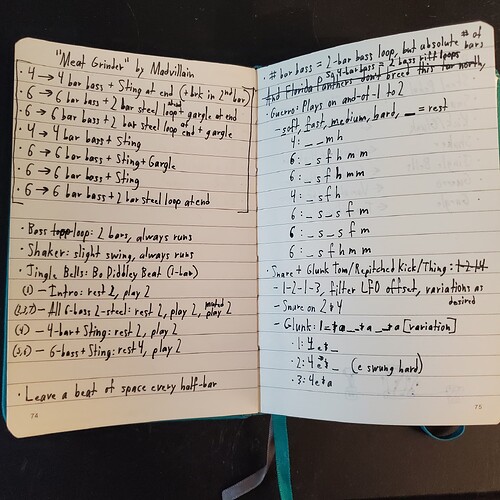 "Meat Grinder" by Madvillain
• 4 → 4 bar bass + Sting at end (+brk in 2nd bar)
• 6 → 6 bar bass + 2 bar steel loop + gargle at end
• 6 → 6 bar bass + 2 bar steel loop at end + gargle
• 4 → 4 bar bass + Sting
• 6 → 6 bar bass + Sting + Gargle
• 6 → 6 bar bass + Sting
• 6 → 6 bar bass + 2 bar steel loop at end
• Bass loop: 2 bars, always runs
• Shaker: slight swing, always runs
• Jingle Bells: Bo Diddley Beat (1-bar)
(1) – Intro: rest 2, play 2
(2,3,7) – All 6-bass 2-steel: rest 2, play 2, muted play 2
(4) – 4-bar + Sting: rest 2, play 2
(5,6) – 6-bass + Sting: rest 4, play 2
• Leave a beat of space every half-bar
74
• # bar bass = 2-bar bass loop, but absolute # of bars
So 4-bar bass = 2 bass riff loops
And Florida Panthers don't breed this far north,
• Guero: Plays on and-of-1 to 2
– soft, fast, medium, hard, _ = rest
4: _ _ m h
6: _ s f h m m
6: _ s f h m m
4: _ s f h
6: _ s _ s f m
6: _ s _ s f m
6: _ s f h m m
• Snare + Glunk Tom/Repitched Kick/Thing: 1-2-14
– 1-2-1-3, filter LFO offset, variations as desired
– Snare on 2 & 4
– Glunk: [variation]
• 1: 4 e & _
• 2: 4 e & _ (e swung hard)
• 3: 4 e & a
75